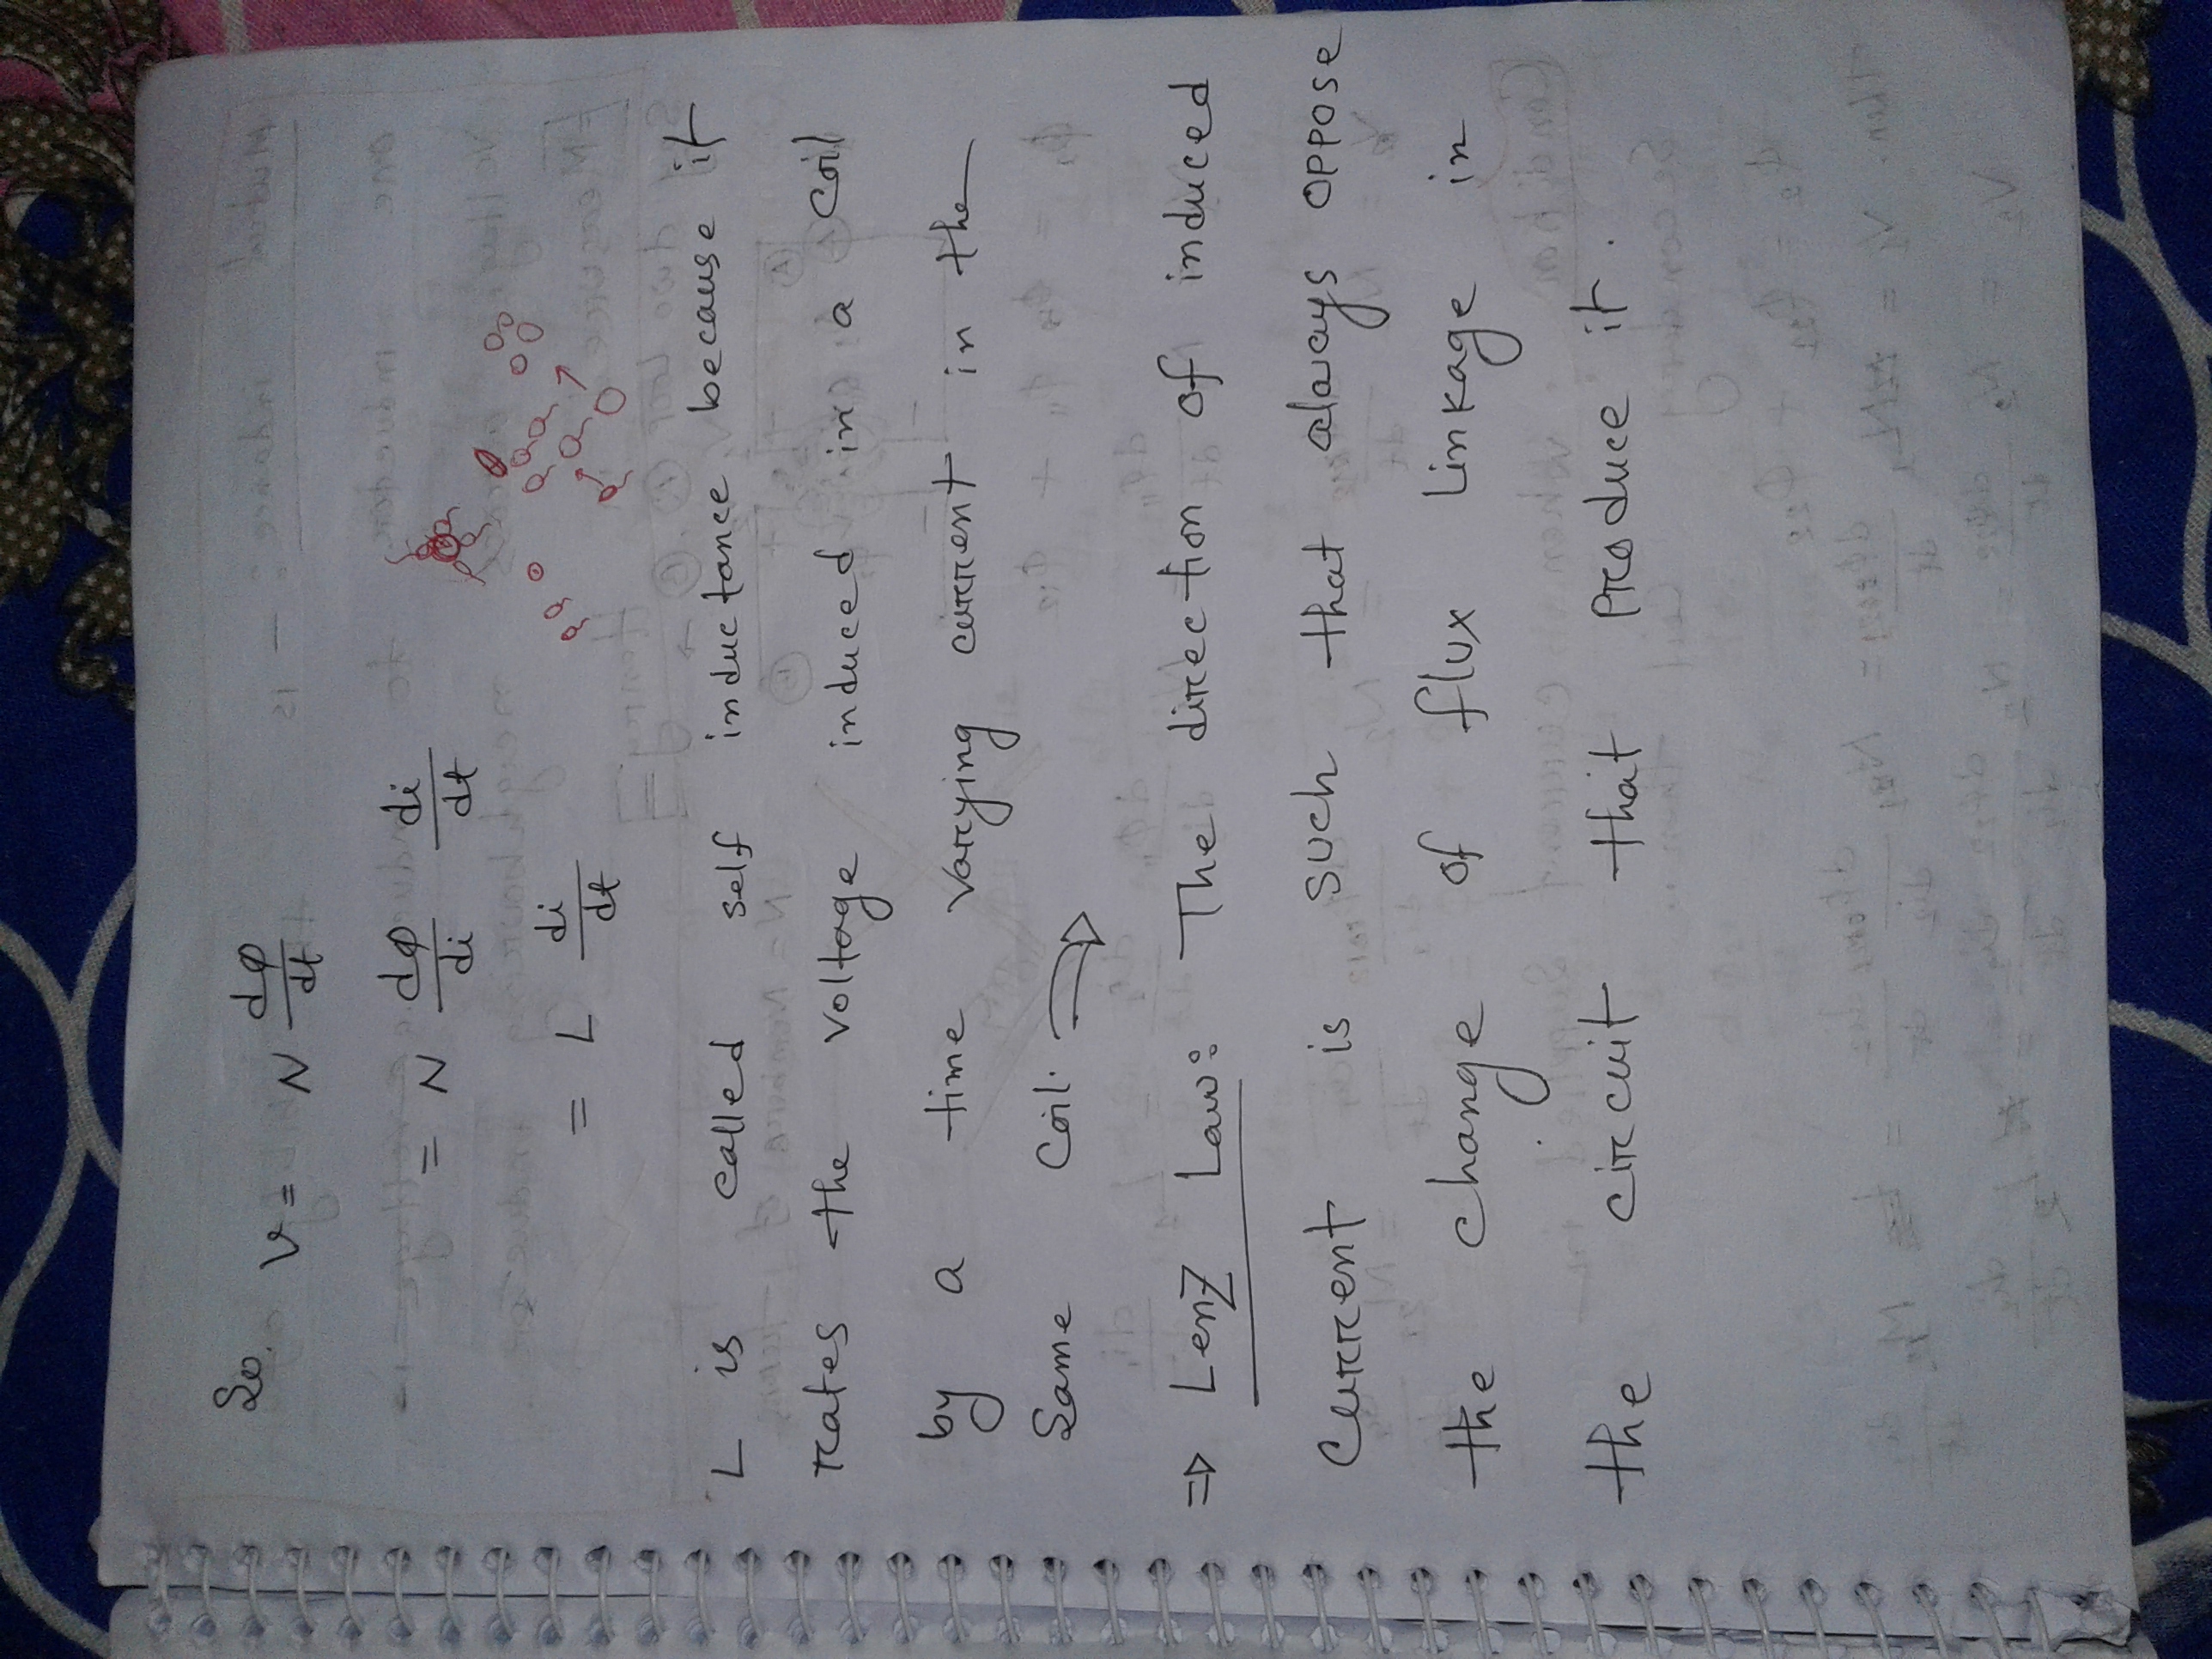 So. V = N dφ/dt
= N dφ/di di/dt
= L di/dt
L is called self inductance because it
rates the voltage induced in a coil
by a time varying current in the
Same Coil.
⇒ Lenz Law: The direction of induced
current is such that always oppose
the change of flux linkage in
the circuit that produce it.